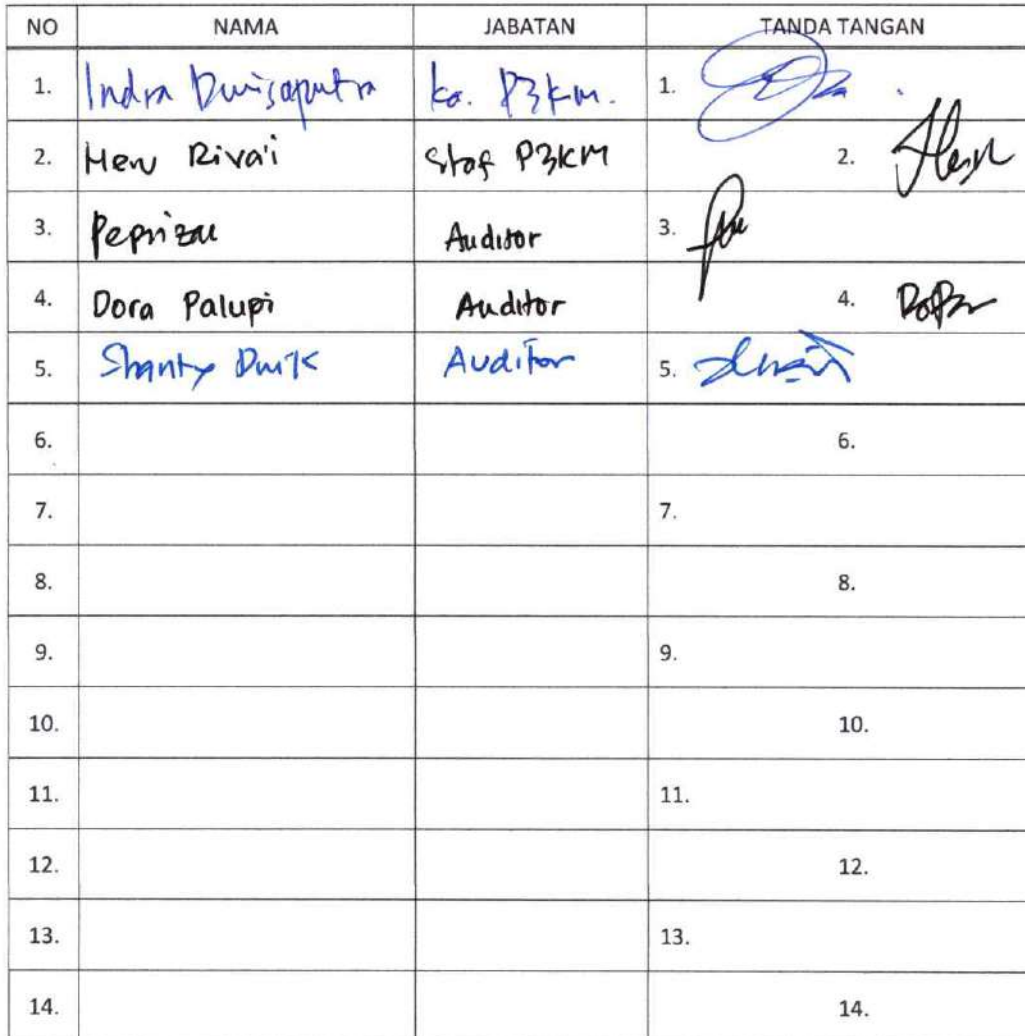 NO NAMA JABATAN TANDA TANGAN
1. Indra Dwisaputra ka. P3km. 1.
2. Heru Riva'i Staf P3KM 2.
3. Peprizal Auditor 3.
4. Dora Palupi Auditor 4.
5. Shanty Dwi K Auditor 5.
6. 6.
7. 7.
8. 8.
9. 9.
10. 10.
11. 11.
12. 12.
13. 13.
14. 14.